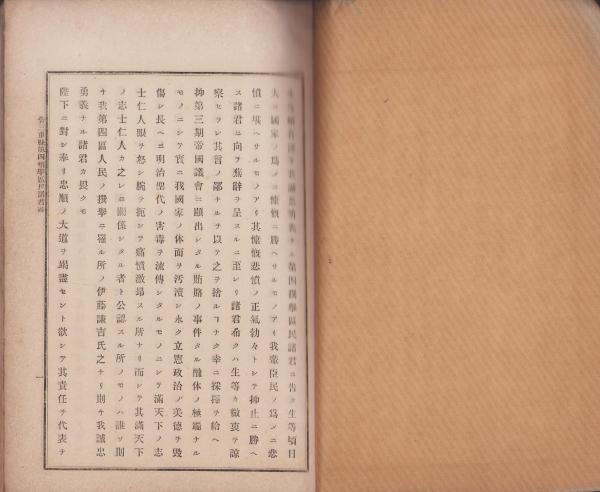 民諸君ニ告ク生等頃日
大ニ國家ノ爲メニ慷慨ニ勝ヘサルモノアリ我輩臣民ノ爲メニ悲
憤ニ堪ヘサルモノアリ其慷慨悲憤ノ正氣勃々トシテ抑止ニ勝ヘ
ス諸君ニ向テ蕪辭ヲ呈スルニ至レリ諸君希クハ生等カ微衷ヲ諒
察セラレ其言ノ鄙ナルヲ以テ之ヲ捨ルヿナク幸ニ採擇ヲ給ヘ
抑第三期帝國議會ニ顯出シタル賄賂ノ事件タル醜体ノ極端ナル
モノニシテ實ニ我國家ノ休面ヲ汚瀆シ永ク立憲政治ノ美德ヲ毀
傷シ長ヘニ明治聖代ノ害毒ヲ流傳シタルモノニシテ滿天下ノ志
士仁人眼ヲ怒シ腕ヲ扼シテ痛憤激昂スル所ナリ而シテ其滿天下
ノ志士仁人カ之レニ關係シタル者ト公認スル所ノモノハ誰ソ則
チ我第四區人民ノ撰擧ニ罹ル所ノ伊藤謙吉氏之ナリ則チ我誠忠
勇義ナル諸君カ畏クモ
陛下ニ對シ奉リ忠順ノ大道ヲ竭盡セント欲シテ其責任ヲ代表テ
縣第四撰擧區民諸君
一